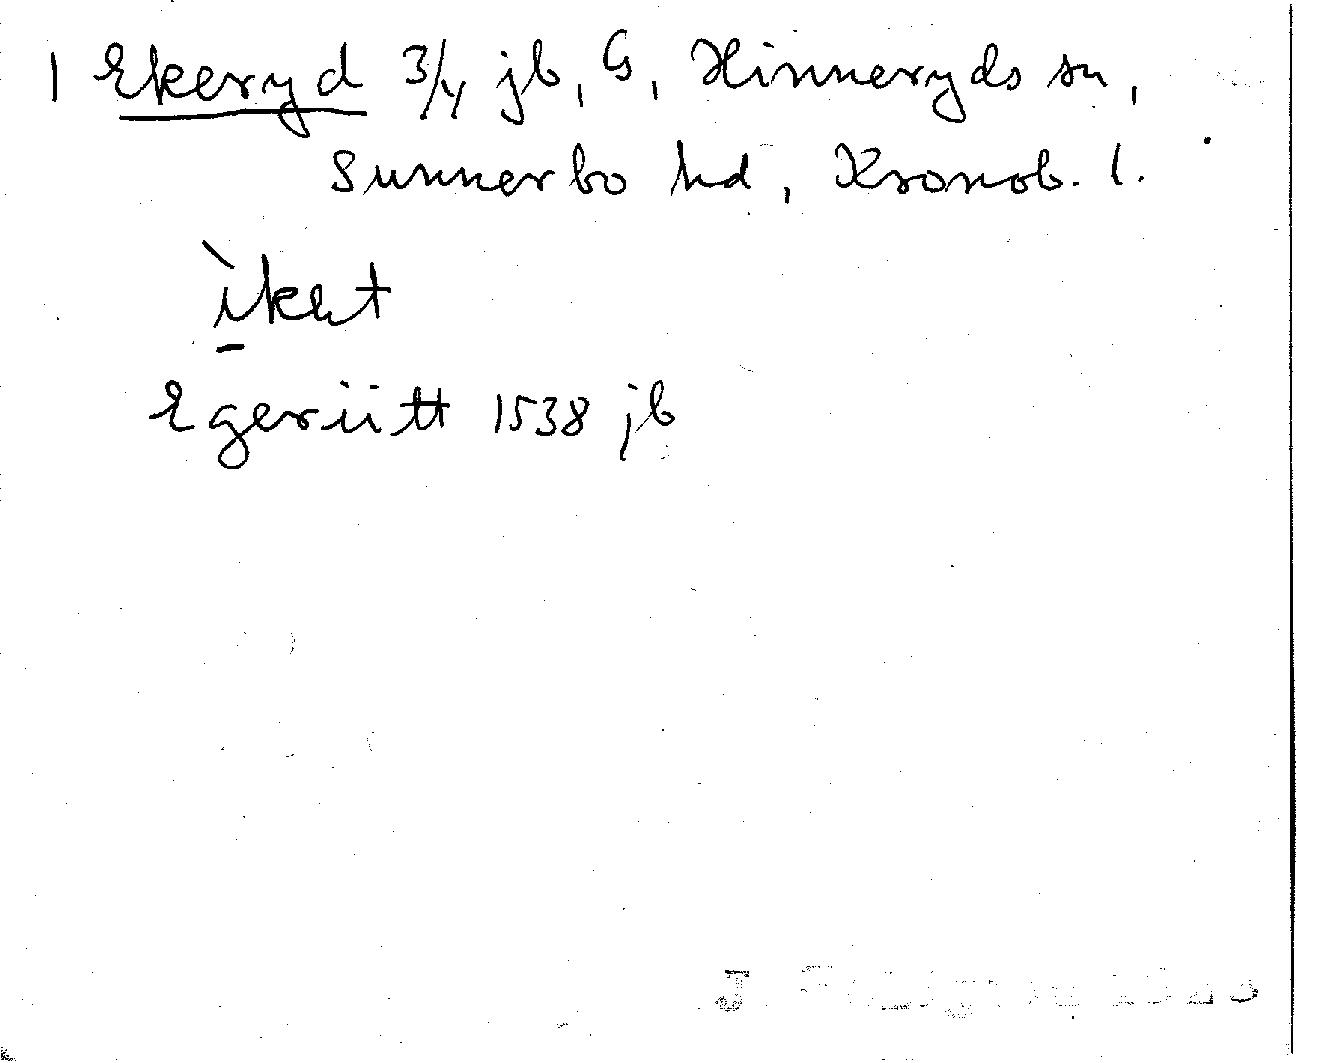 1 Ekeryd 3/4 jb, G, Hinneryds sn,
Sunnerbo hd, Kronob. l.
Egerütt 1538 jb
J.